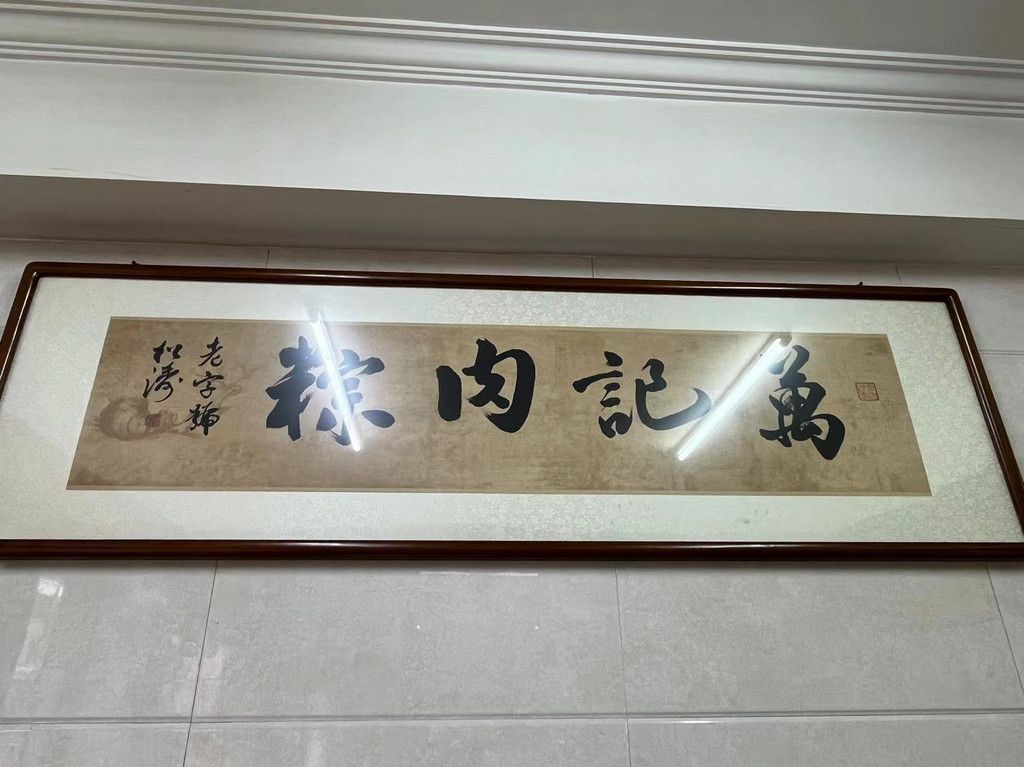 萬記肉粽
老字號
松濤